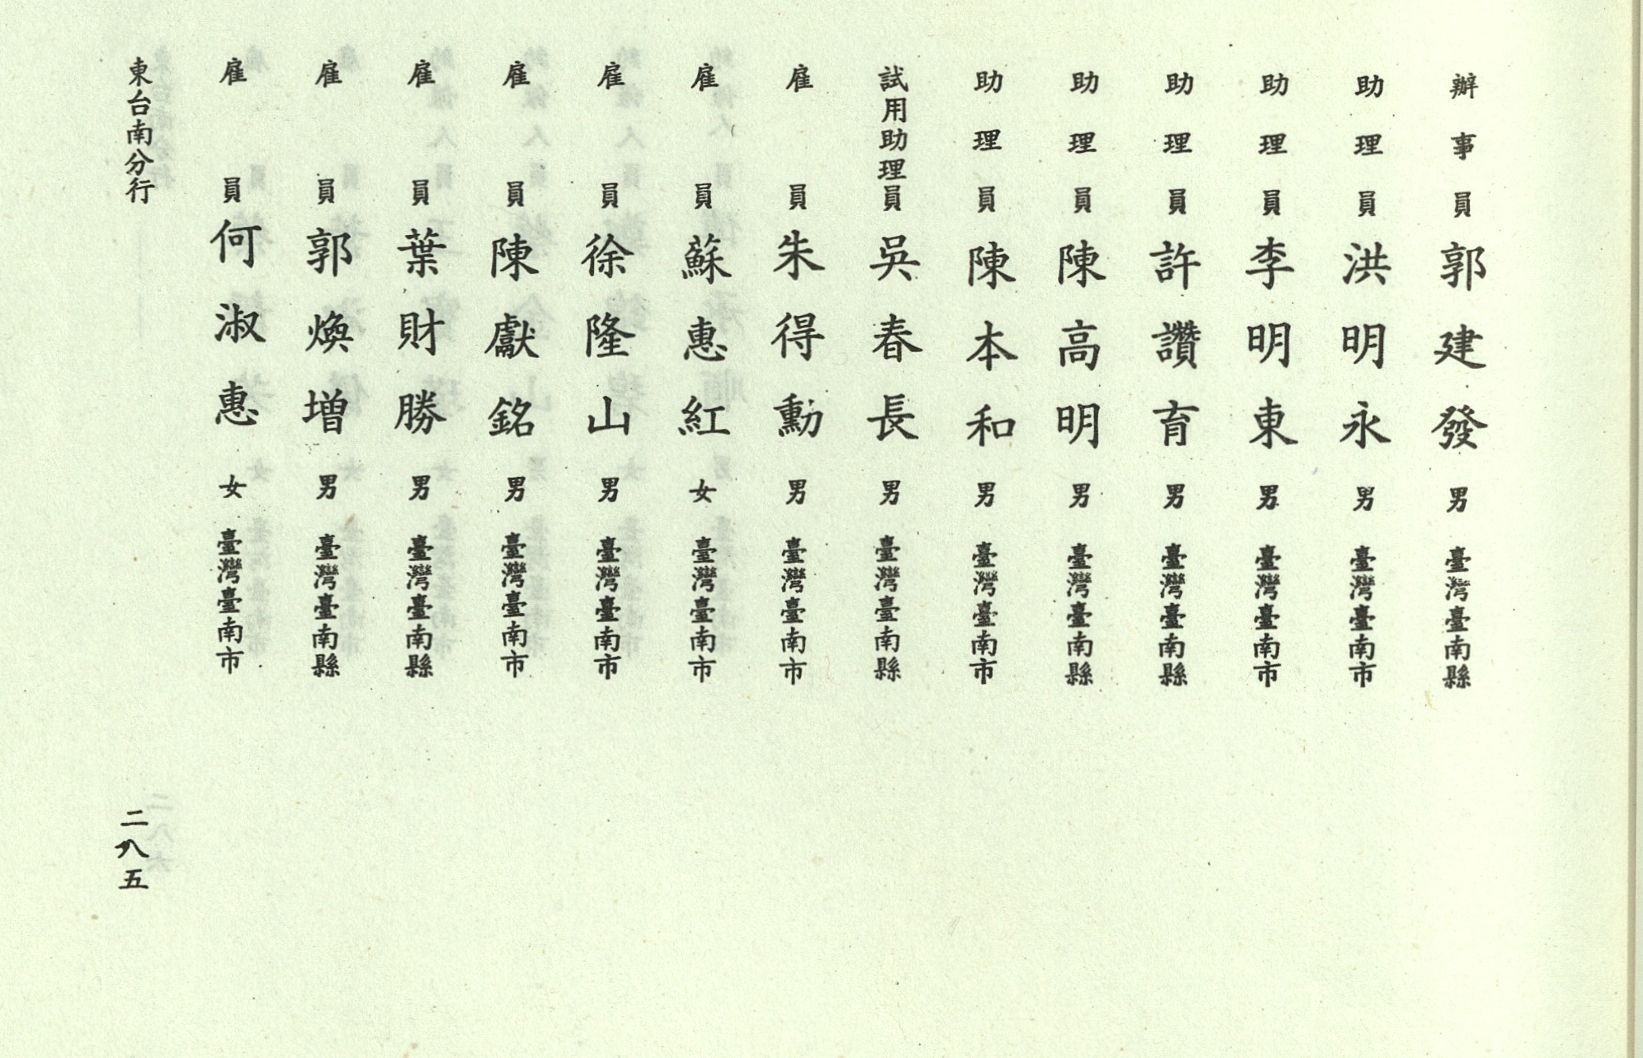 辦事員郭建發男臺灣臺南縣
助理員洪明永男臺灣臺南市
助理員李明東男臺灣臺南市
助理員許讚育男臺灣臺南縣
助理員陳高明男臺灣臺南縣
助理員陳本和男臺灣臺南市
試用助理員吳春長男臺灣臺南縣
雇員朱得勳男臺灣臺南市
雇員蘇惠紅女臺灣臺南市
雇員徐隆山男臺灣臺南市
雇員陳獻銘男臺灣臺南市
雇員葉財勝男臺灣臺南縣
雇員郭煥增男臺灣臺南縣
雇員何淑惠女臺灣臺南市
東台南分行
二八五